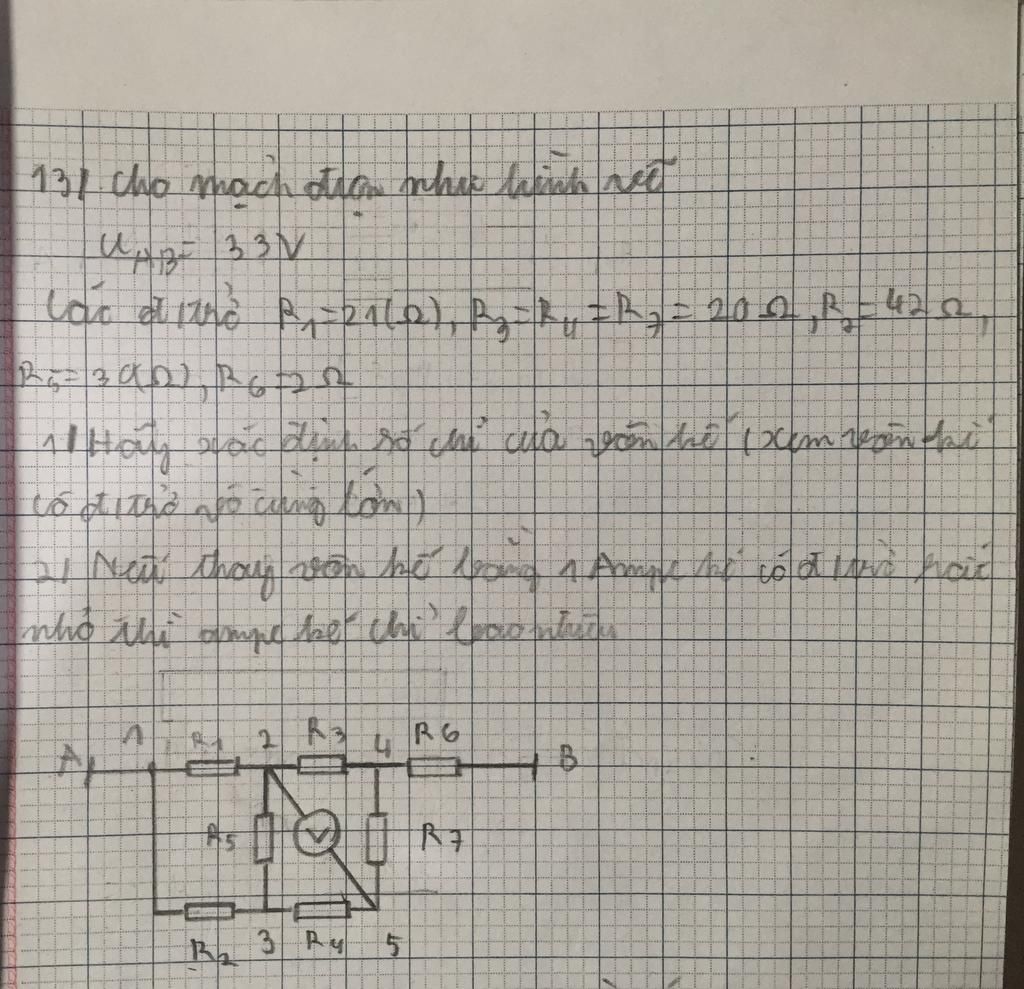 13/ Cho mạch điện như hình vẽ
U_AB = 33V
Các đ/trở R1 = 21(Ω), R3 = R4 = R7 = 20Ω, R2 = 42Ω,
R5 = 30(Ω), R6 = 2Ω
1/ Hãy xác định số chỉ của vôn kế (xem vôn kế
có đ/trở vô cùng lớn)
2/ Nếu thay vôn kế bằng 1 Ampe kế có đ/trở
nhỏ thì ampe kế chỉ bao nhiêu
A 1 R1 2 R3 4 R6 B
R5 V R7
R2 3 R4 5